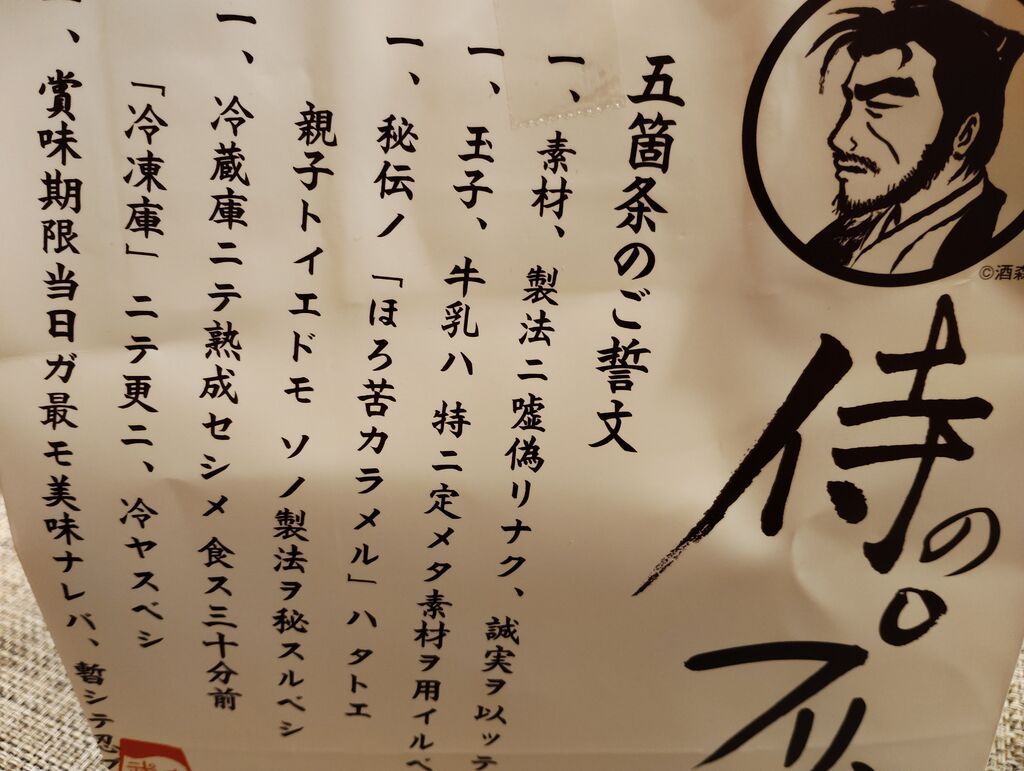 ©酒森
侍の
プリ
五箇条のご誓文
一、素材、製法ニ嘘偽リナク、誠実ヲ以ッテ
一、玉子、牛乳ハ 特ニ定メタ素材ヲ用イルベ
一、秘伝ノ「ほろ苦カラメル」ハタトエ
親子トイエドモ ソノ製法ヲ秘スルベシ
一、冷蔵庫ニテ熟成セシメ 食ス三十分前
「冷凍庫」ニテ更ニ、冷ヤスベシ
一、賞味期限当日ガ最モ美味ナレバ、暫シテ忍